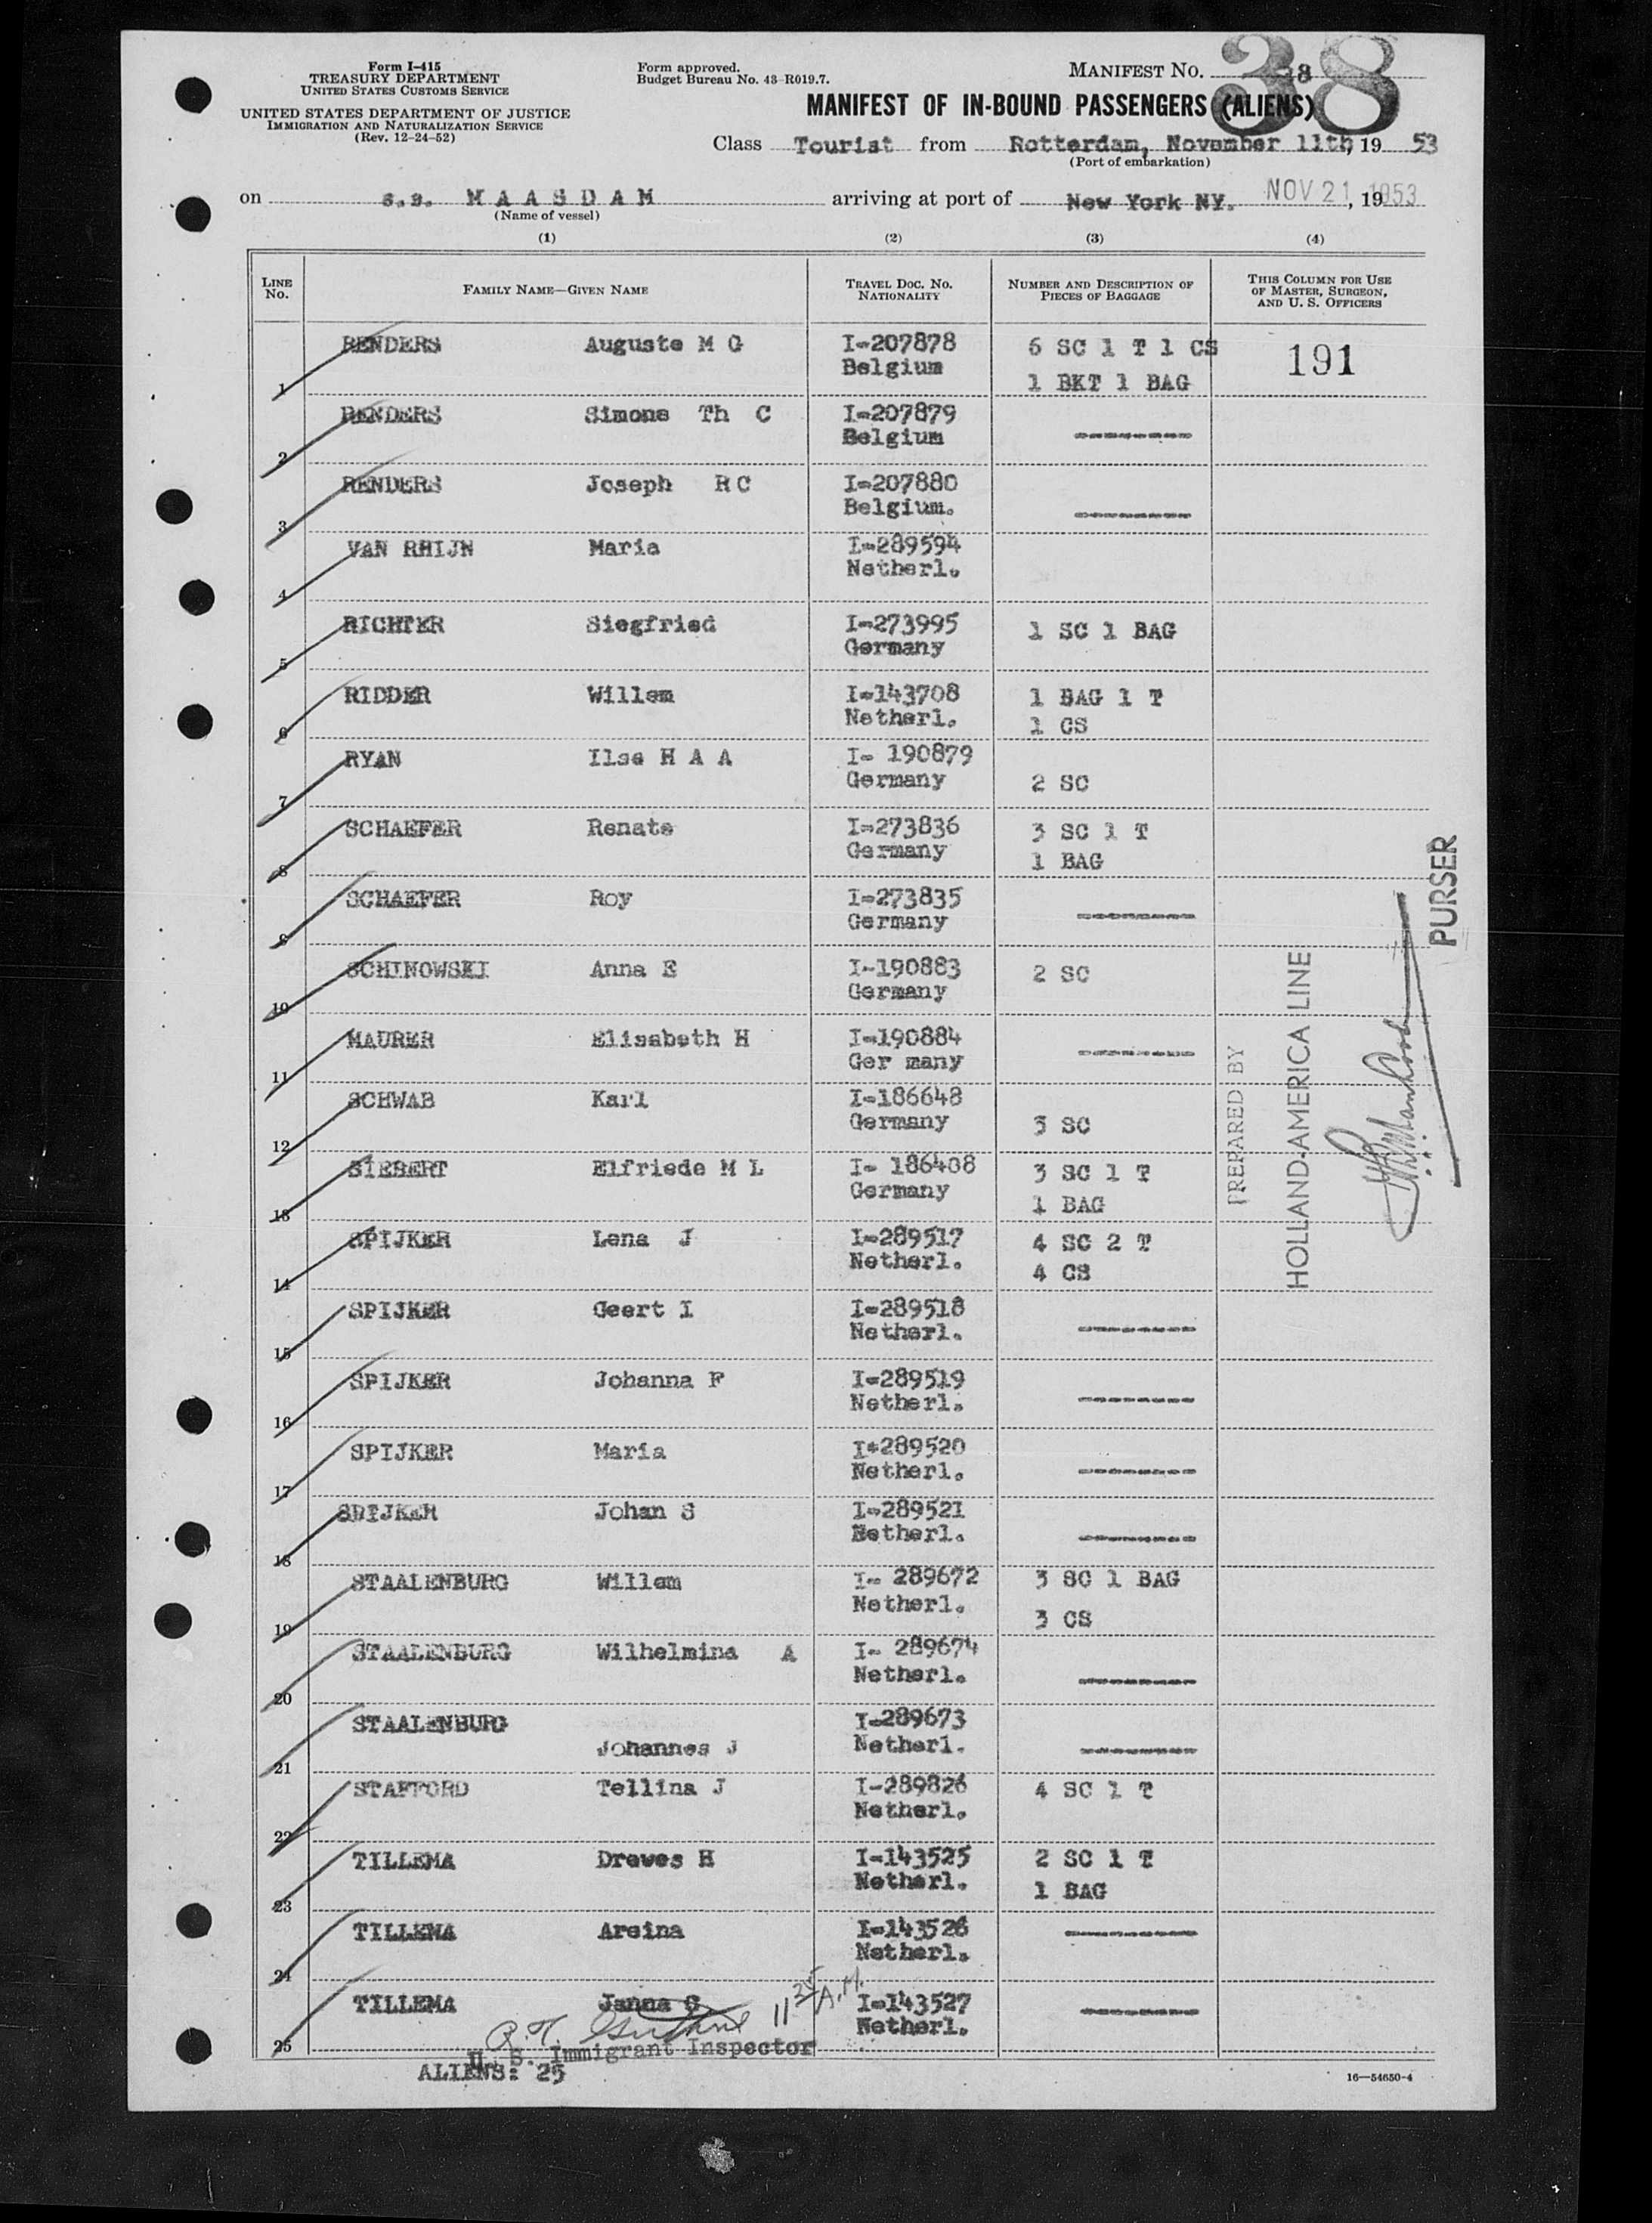 Form I-415
TREASURY DEPARTMENT
UNITED STATES CUSTOMS SERVICE
UNITED STATES DEPARTMENT OF JUSTICE
IMMIGRATION AND NATURALIZATION SERVICE
(Rev. 12-24-52)
Form approved.
Budget Bureau No. 43-R019.7.
MANIFEST NO. 38
MANIFEST OF IN-BOUND PASSENGERS (ALIENS)
Class Tourist from Rotterdam, November 11th, 19 53
(Port of embarkation)
on s.s. MAASDAM arriving at port of New York NY. NOV 21, 1953
(Name of vessel)
(1) (2) (3) (4)
LINE NO. FAMILY NAME—GIVEN NAME TRAVEL DOC. NO. NATIONALITY NUMBER AND DESCRIPTION OF PIECES OF BAGGAGE THIS COLUMN FOR USE OF MASTER, SURGEON, AND U. S. OFFICERS
1 RENDERS Auguste M G I-207878 Belgium 6 SC 1 T 1 CS 1 BKT 1 BAG 191
2 RENDERS Simone Th C I-207879 Belgium -------
3 RENDERS Joseph R C I-207880 Belgium. -------
4 VAN RHIJN Maria I-289594 Netherl.
5 RICHTER Siegfried I-273995 Germany 1 SC 1 BAG
6 RIDDER Willem I-143708 Netherl. 1 BAG 1 T 1 CS
7 RYAN Ilse H A A I- 190879 Germany 2 SC
8 SCHAEFER Renate I-273836 Germany 3 SC 1 T 1 BAG
9 SCHAEFER Roy I-273835 Germany -------
10 SCHINOWSKI Anna E I-190883 Germany 2 SC
11 MAURER Elisabeth H I-190884 Ger many -------
12 SCHWAB Karl I-186648 Germany 3 SC
13 SIEBERT Elfriede M L I- 186408 Germany 3 SC 1 T 1 BAG
14 SPIJKER Lena J I-289517 Netherl. 4 SC 2 T 4 CS
15 SPIJKER Geert I I-289518 Netherl. -------
16 SPIJKER Johanna F I-289519 Netherl. -------
17 SPIJKER Maria I-289520 Netherl. -------
18 SPIJKER Johan S I-289521 Netherl. -------
19 STAALENBURG Willem I- 289672 Netherl. 3 SC 1 BAG 3 CS
20 STAALENBURG Wilhelmina A I- 289674 Netherl. -------
21 STAALENBURG Johannes J I-289673 Netherl. -------
22 STAFFORD Tellina J I-289826 Netherl. 4 SC 1 T
23 TILLEMA Drewes H I-143525 Netherl. 2 SC 1 T 1 BAG
24 TILLEMA Areina I-143526 Netherl. -------
25 TILLEMA Janna G I-143527 Netherl. -------
11 25 A.M.
U. S. Immigrant Inspector
ALIENS: 25
16—54650-4
PREPARED BY
HOLLAND-AMERICA LINE
PURSER